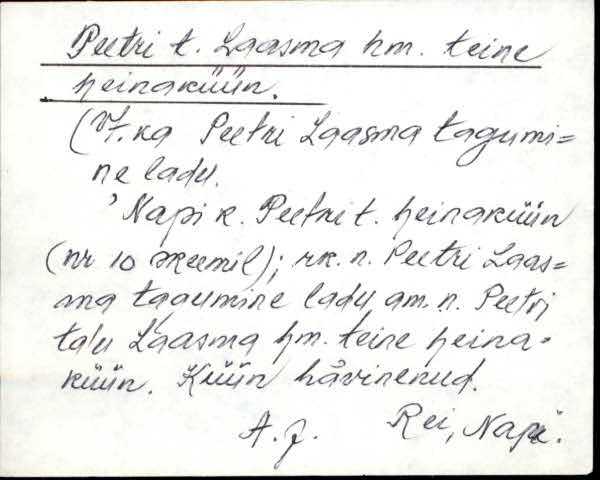 Peetri t. Laasma hm. teine
heinaküün.
(Vt. ka Peetri Laasma tagumi=
ne ladu.
' Napi k. Peetri t. heinaküün
(nr 10 skeemil); rk. n. Peetri Laas=
ma tagumine ladu am. n. Peetri
talu Laasma hm. teine heina-
küün. Küün hävinenud.
A. J. Rei, Napi.